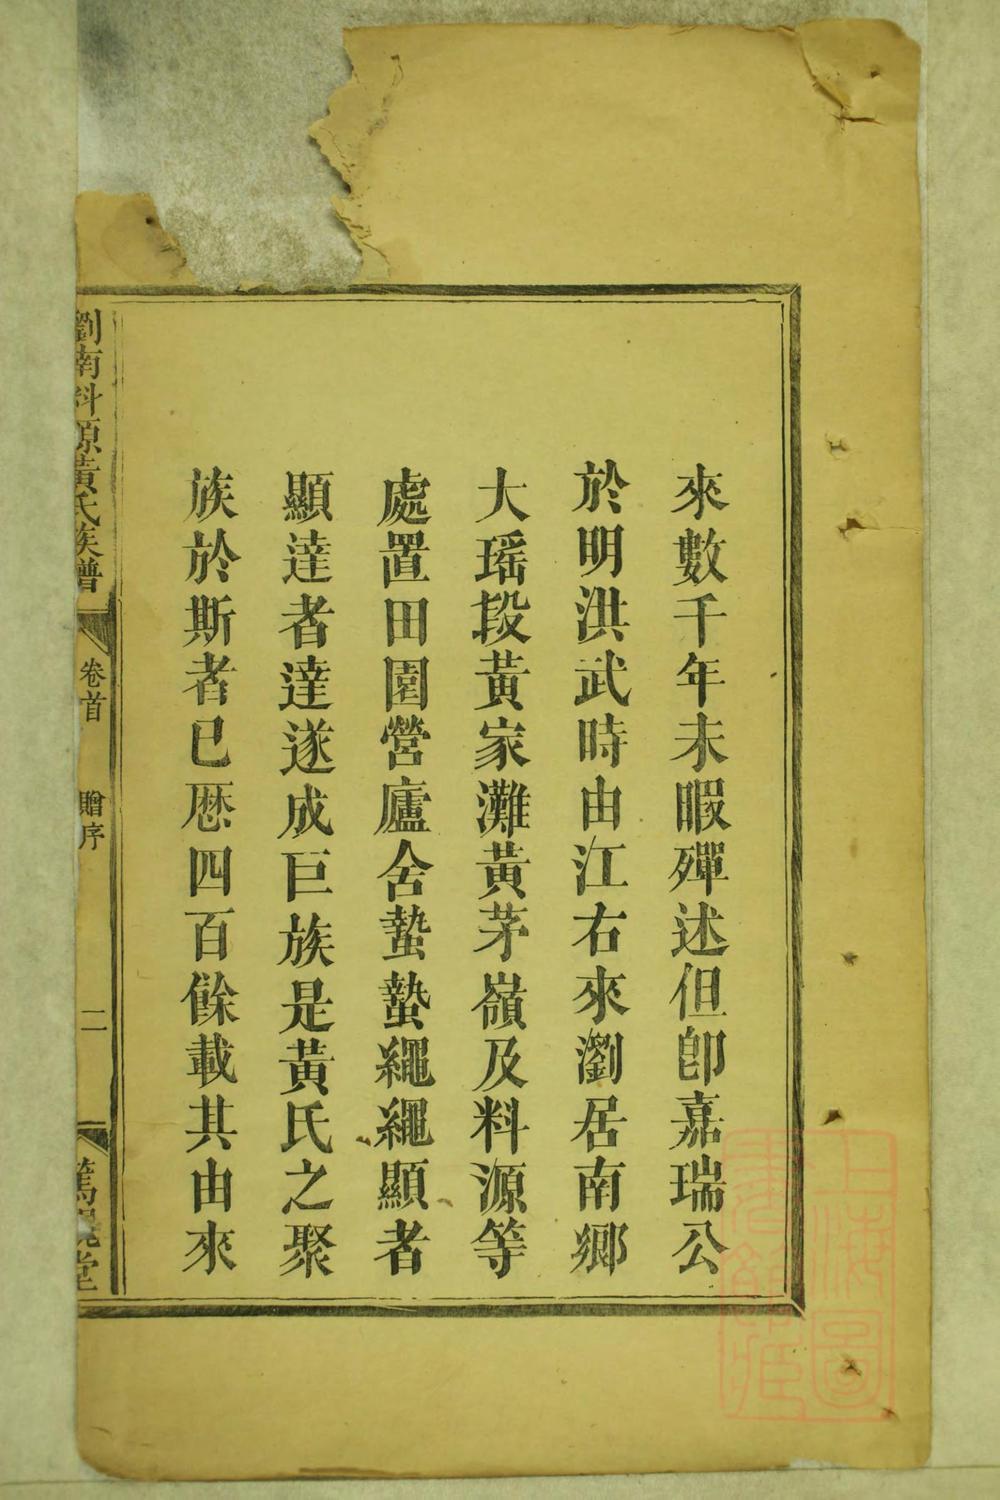 來數千年未暇殫述但卽嘉瑞公
於明洪武時由江右來瀏居南鄉
大瑶段黃家灘黃茅嶺及料源等
處置田園營廬舍蟄蟄繩繩顯者
顯達者達遂成巨族是黃氏之聚
族於斯者已歷四百餘載其由來
瀏南料源黃氏族譜
卷首
贈序
二
上海圖書館藏